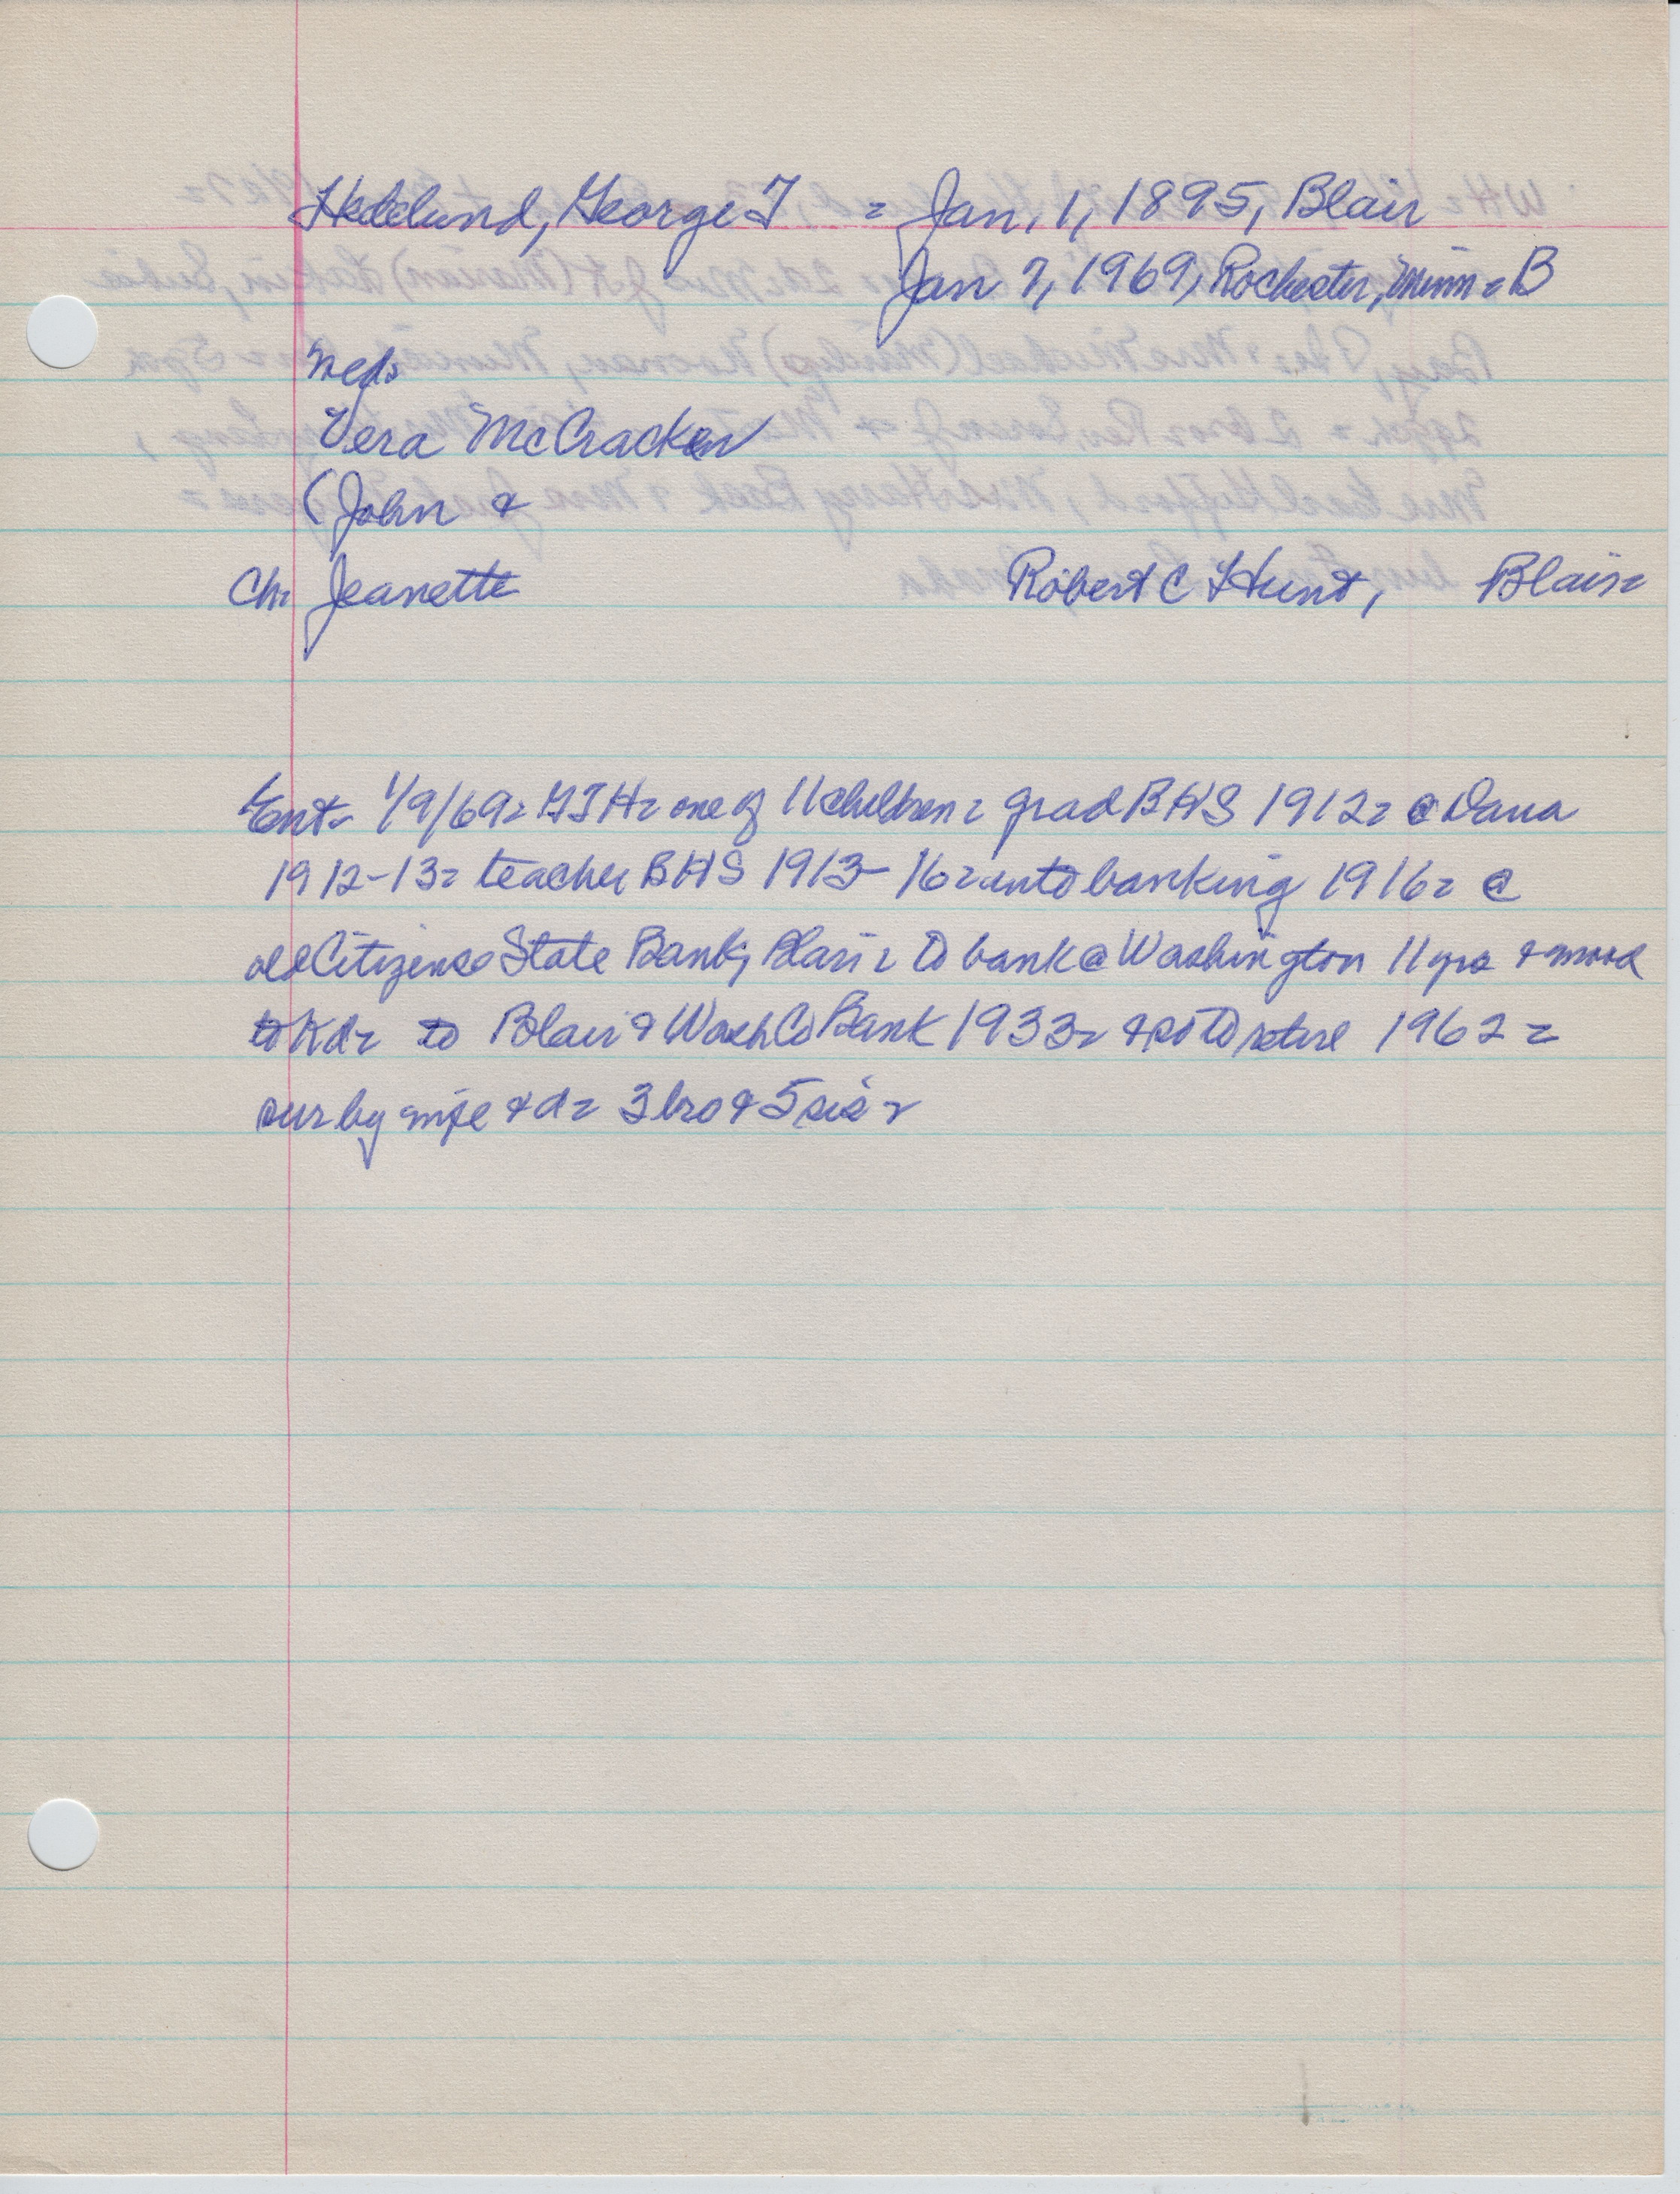 Hedelund, George T = Jan, 1, 1895, Blair
Jan 7, 1969, Rochester, Minn = B
Wed:
Vera McCracken
(John &
Ch: Jeanette Robert C Hunt, Blair=
Ent- 1/9/69= GTH= one of 11 children= grad BHS 1912= @ Dana
1912-13= teacher BHS 1913-16= into banking 1916= @
old Citizens State Bank, Blair= to bank @ Washington 11 yrs &
to Kd= to Blair & Wash Co Bank 1933= & so to retire 1962=
sur by wife & d= 3 bro & 5 sis=